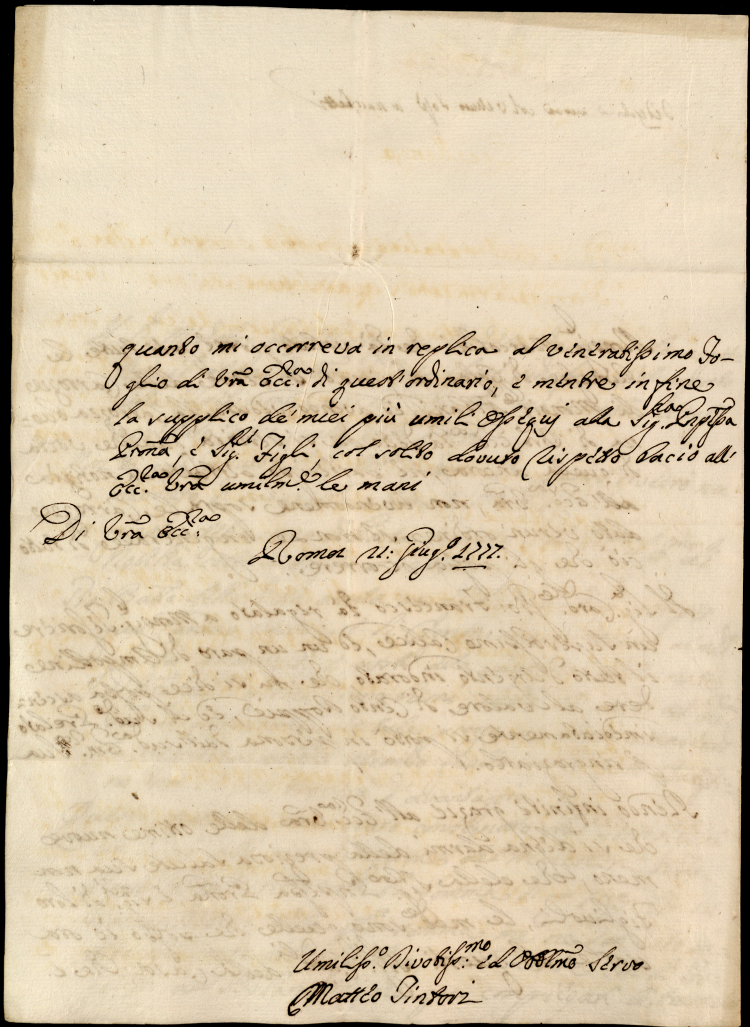 quanto mi occorreva in replica al veneratissimo Fo-
glio di Vrã Ecc.za di quest'ordinario, e mentre infine
la supplico de' miei più umili Ossequj alla Sig.ra
Prñta, e Sig.ri Figli, col solito dovuto rispetto bacio all'
Ecc.za Vrã umilm.e le mani
Di Vrã Ecc.za
Roma 21: Giug.o 1777.
Umiliss.o Divotiss.mo ed Obblmo Servo
Matteo Tintori